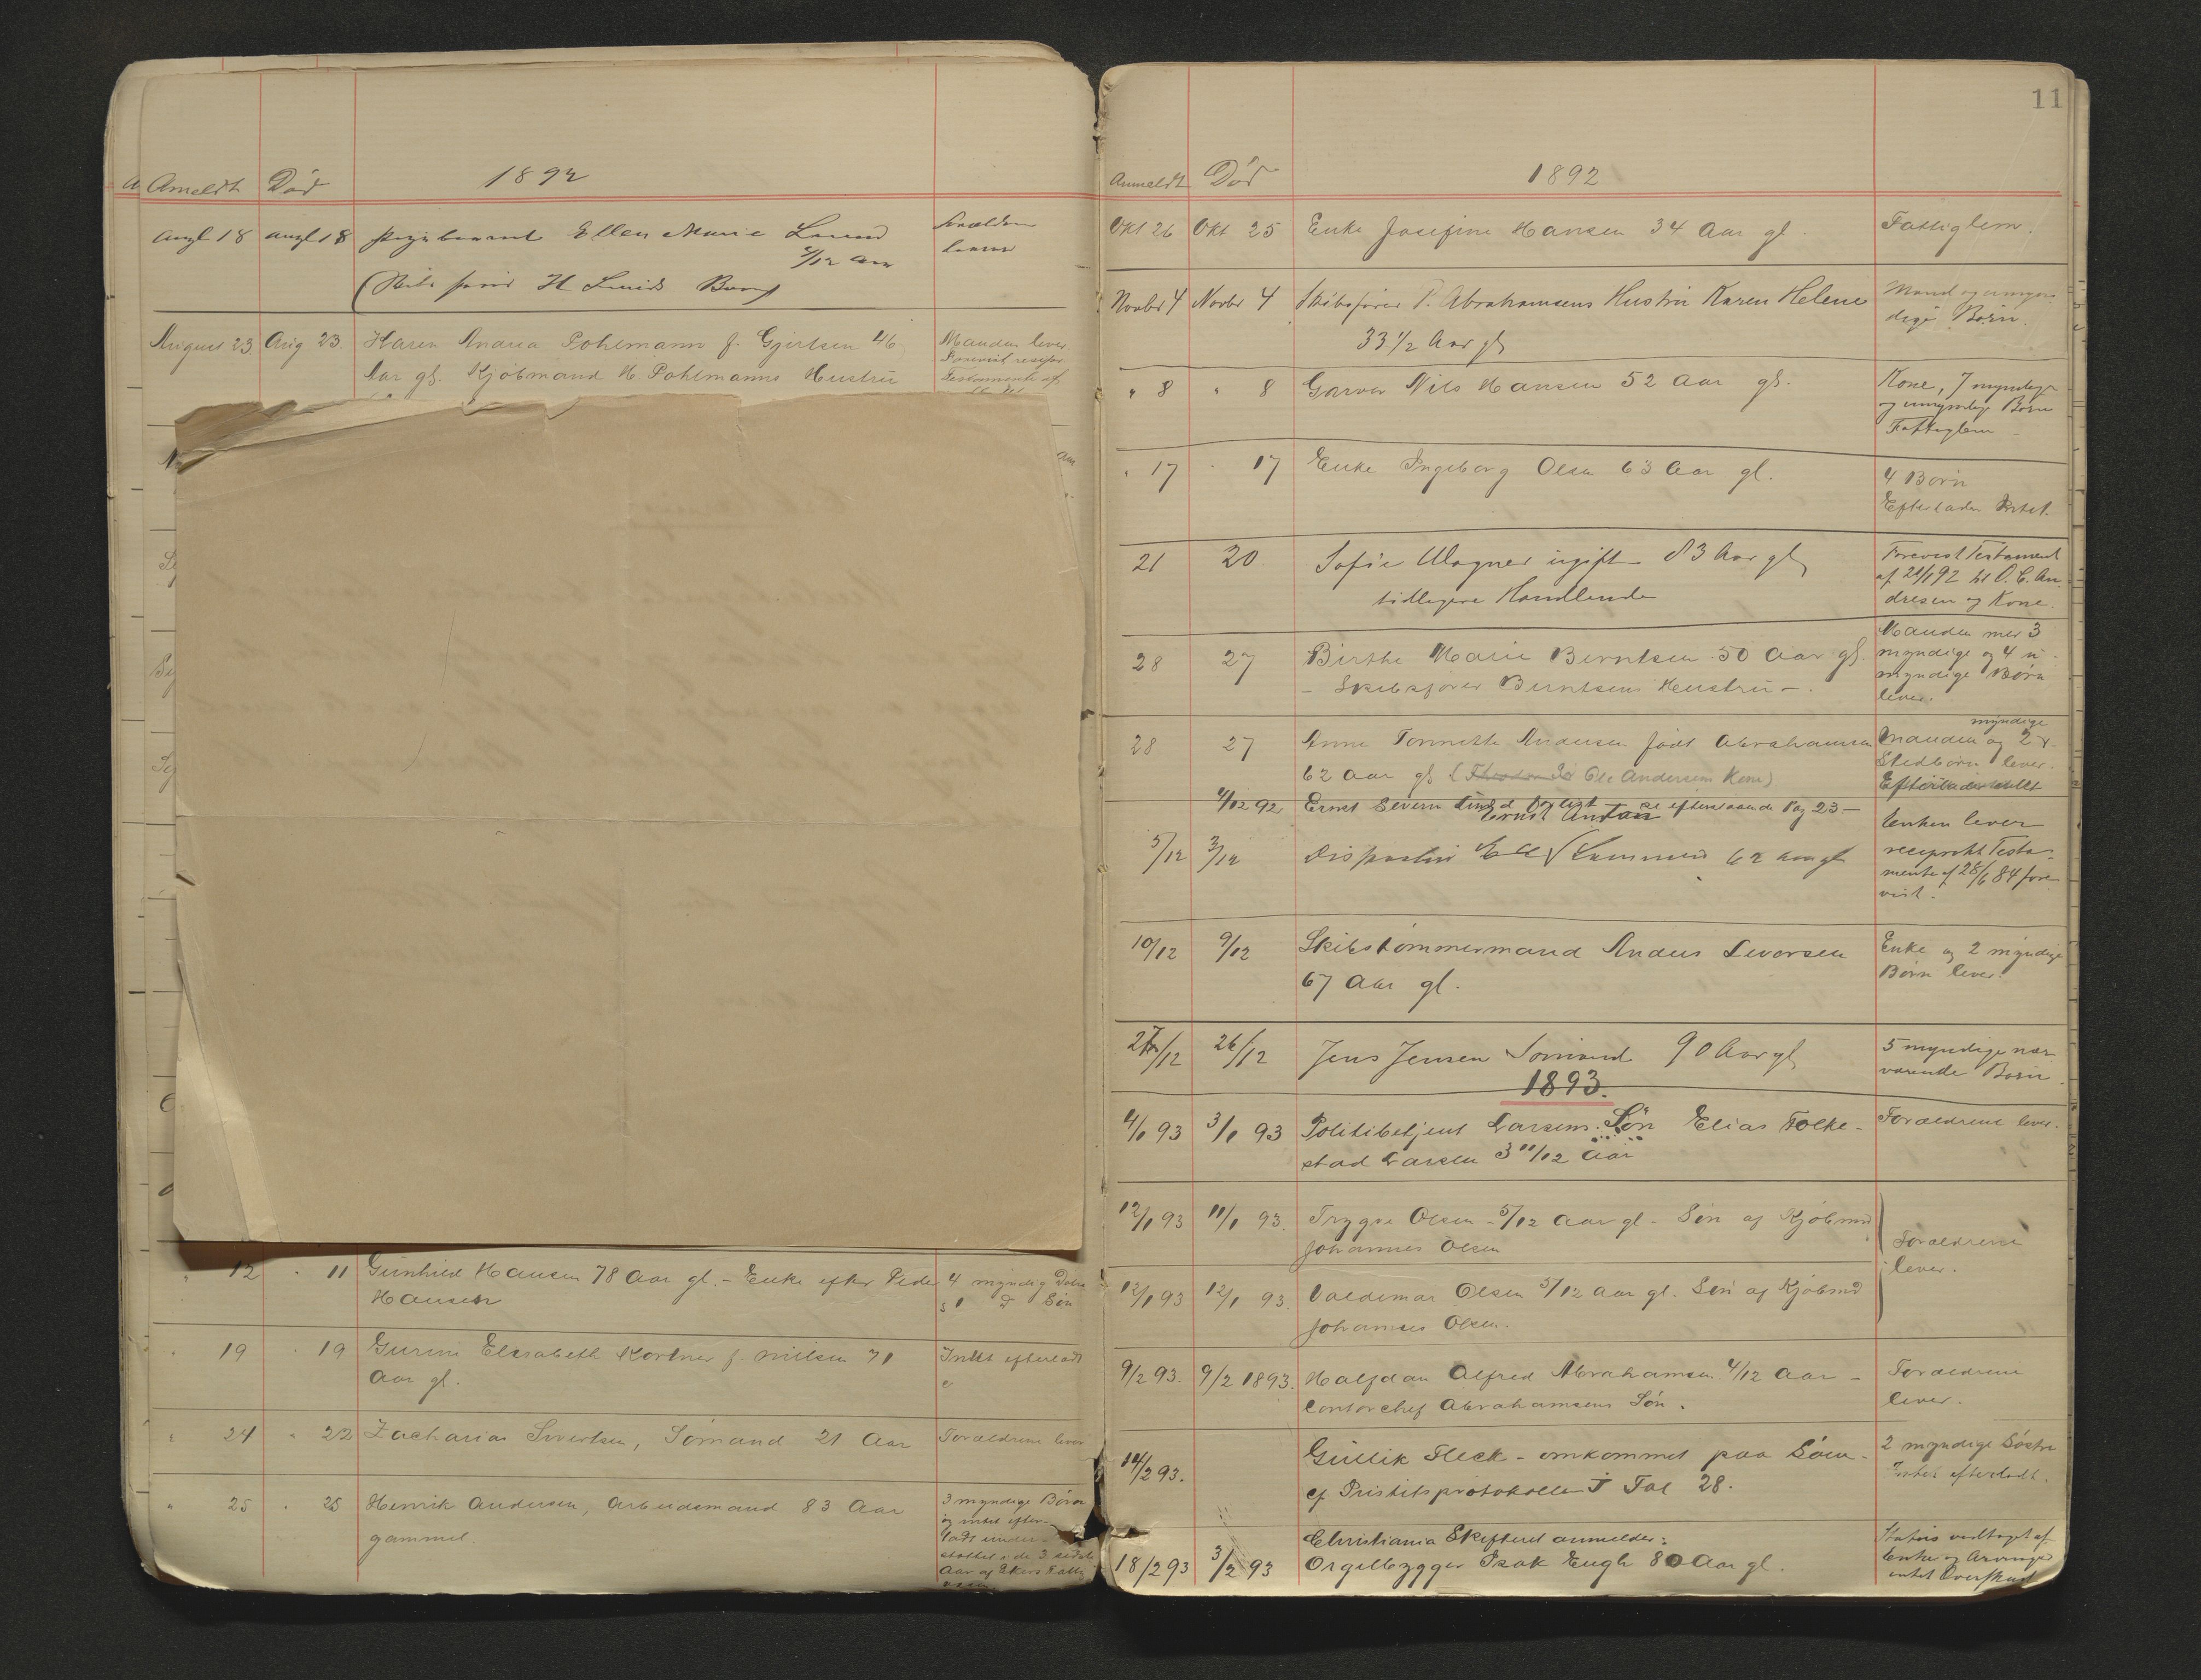 Anmeldt Död 1892
Augt 18 augt 18 Pigebarnet Ellen Marie Lund
/12 aar
H Lunds Barn
August 23. Aug 23. Karen Andrea Pohlmann f. Gjertsen 46 Manden lever
Aar gl. Kjøbmand H Pohlmanns Hustru
Testamente af
12 " 11 Gunhild Hansen 78 Aar gl. - Enke efter Peder 4 myndig Døtre
Hansen s 1 D Søn
" 19 " 19 Gurine Elisabeth Kortner f. Nilsen 71 Intet efterladt
Aar gl.
" 24 " 22 Zacharias Sivertsen, Sömand 21 Aar Forældrene lever
" 25 " 25 Henrik Andersen, Arbeidsmand 83 Aar 3 myndige Børn
gammel. og intet efter-
ladt under-
støttet i de 3 sidste
Aar af Fatti
11
Anmeldt Död 1892
Okt 26 Okt 25 Enke Josefine Hansen 34 Aar gl. Fattiglem.
Novbr 4 Novbr 4 Skibsfører P. Abrahamsens Hustru Karen Helene Mand og umyn-
33 1/2 Aar gl dige Børn.
" 8 " 8 Garver Nils Hansen 52 Aar gl. Kone, 7 myndige
og umyndige Børn
Fattiglem
" 17 " 17 Enke Ingeborg Olsen 63 Aar gl. 4 Børn
Efterlader Intet.
21 20 Sofie Wagner ugift 83 Aar gl Forevist Testament
tidligere Handlende af 21/1 92 til O. C. An-
dresen og Kone.
28 27 Birthe Marie Berntsen 50 Aar gl. Manden med 3
- Skibsfører Berntsens Hustru -. myndige og 4 u-
myndige Børn
lever.
28 27 Anne Tonnette Andersen født Abrahamsen Manden og 2 myndige
62 Aar gl. (Ole Andersens Kone) Stedbørn lever.
Efterlader intet
4/12 92 Ernst Severin Lind Ernst Anton se efterstaaende Pag 23 -
5/12 3/12 62 aar gl Enken lever
reciprokt Testa-
mente af 28/6 84 fore-
vist.
10/12 9/12 Skibstømmermand Anders Sivorsen Enke og 2 myndige
67 Aar gl. Børn lever.
27/12 26/12 Jens Jensen Sømand 90 Aar gl 5 myndige nær-
værende Børn.
1893.
4/1 93 3/1 93 Politibetjent Larsens Søn Elias Folke- Forældrene lever.
stad Larsen 3 11/12 Aar
12/1 93 11/1 93. Trygve Olsen - 5/12 Aar gl - Søn af Kjøbmd
Johannes Olsen Forældrene
lever.
12/1 93 12/1 93. Valdemar Olsen 5/12 Aar gl. Søn af Kjøbmd
Johannes Olsen.
9/2 93. 9/2 1893. Halfdan Alfred Abrahamsen 4/12 Aar - Forældrene
Contorchef Abrahamsens Søn. lever.
14/2 93. Gullik Fleck - omkommet paa Søen - 2 myndige Søstre
cf Pristitsprotokollen I Fol 28. Intet efterladt.
Christiania Skifteret anmelder: Status vedtaget af
18/2 93 3/2 93 Orgelbygger Isak Engh 80 Aar gl. Enke og Arvinger
intet Overskud